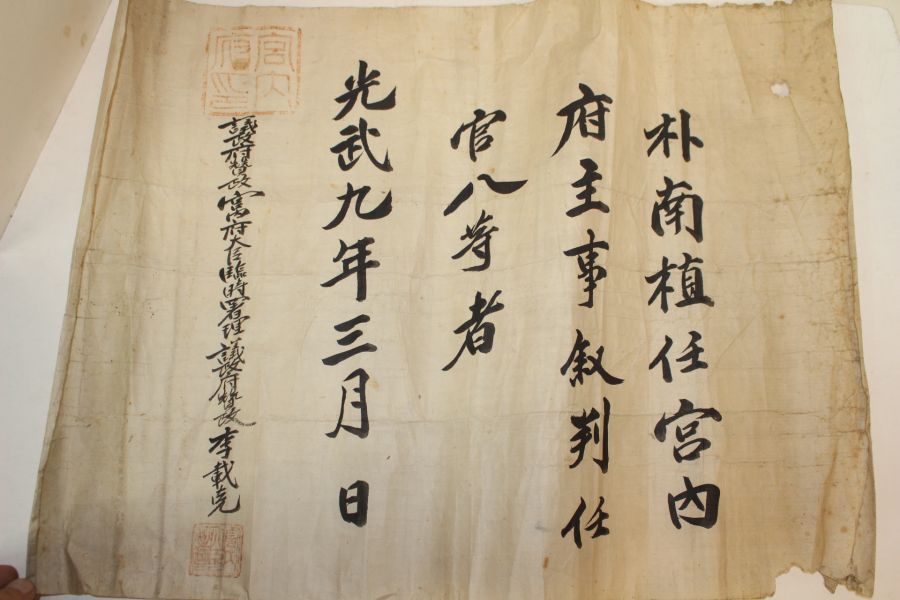 朴南植任宮內
府主事叙判任
官八等者
光武九年三月 日
議政府贊政宮內府大臣臨時署理議政府贊政李載克
宮內府印